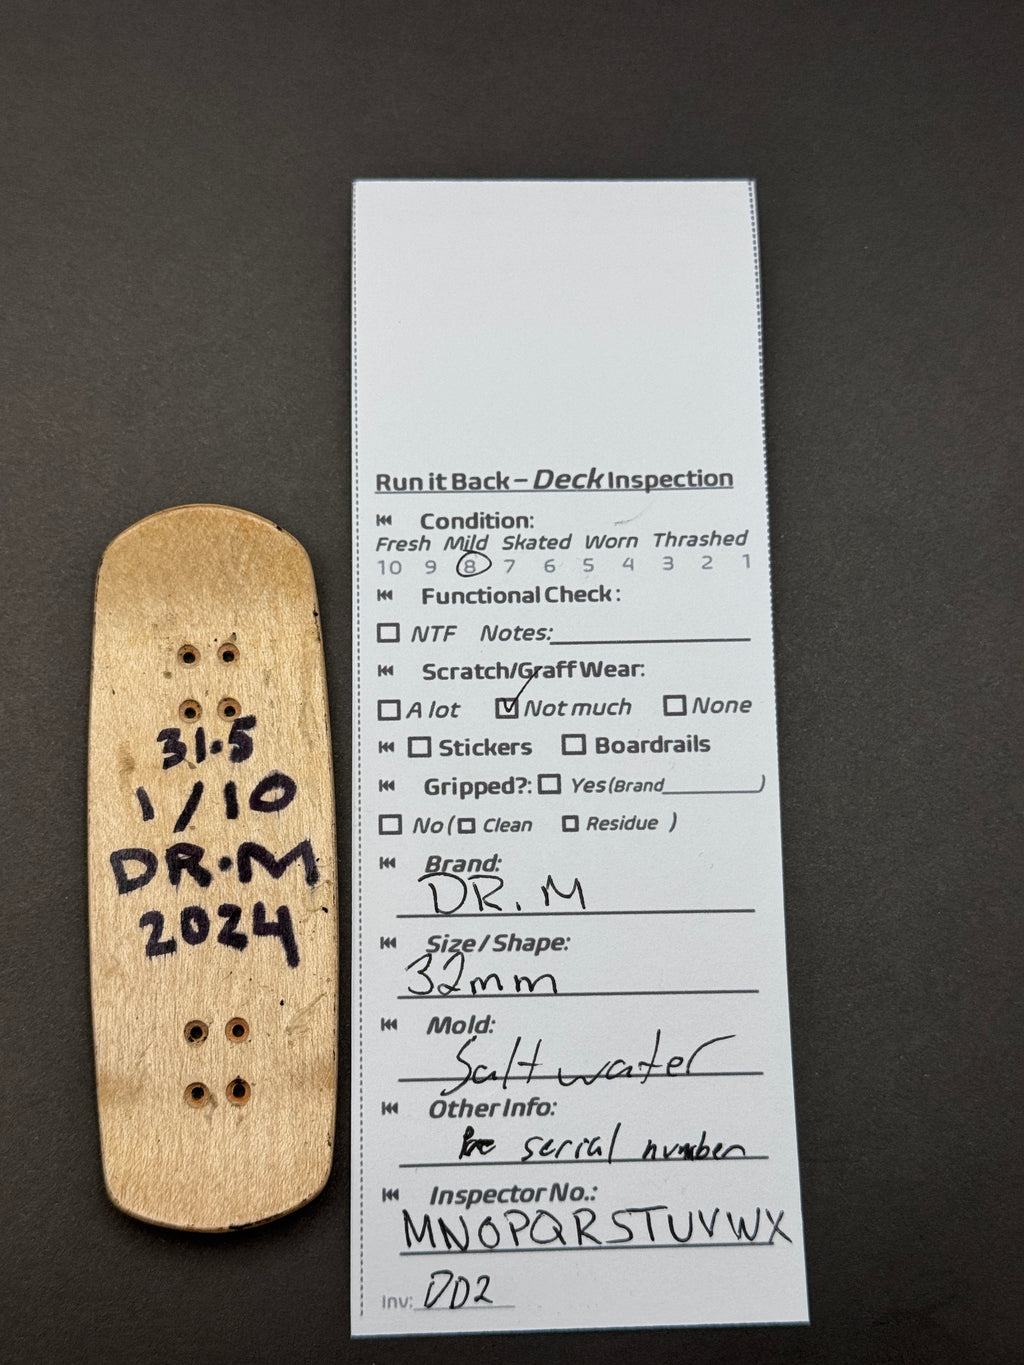 31.5
1/10
DR.M
2024
Run it Back – Deck Inspection
Condition:
Fresh Mild Skated Worn Thrashed
10 9 8 7 6 5 4 3 2 1
Functional Check:
NTF Notes:
Scratch/Graff Wear:
A lot Not much None
Stickers Boardrails
Gripped?: Yes (Brand )
No ( Clean Residue )
Brand:
DR.M
Size / Shape:
32mm
Mold:
Saltwater
Other Info:
serial number
Inspector No.:
MNOPQRSTUVWX
Inv: DD2